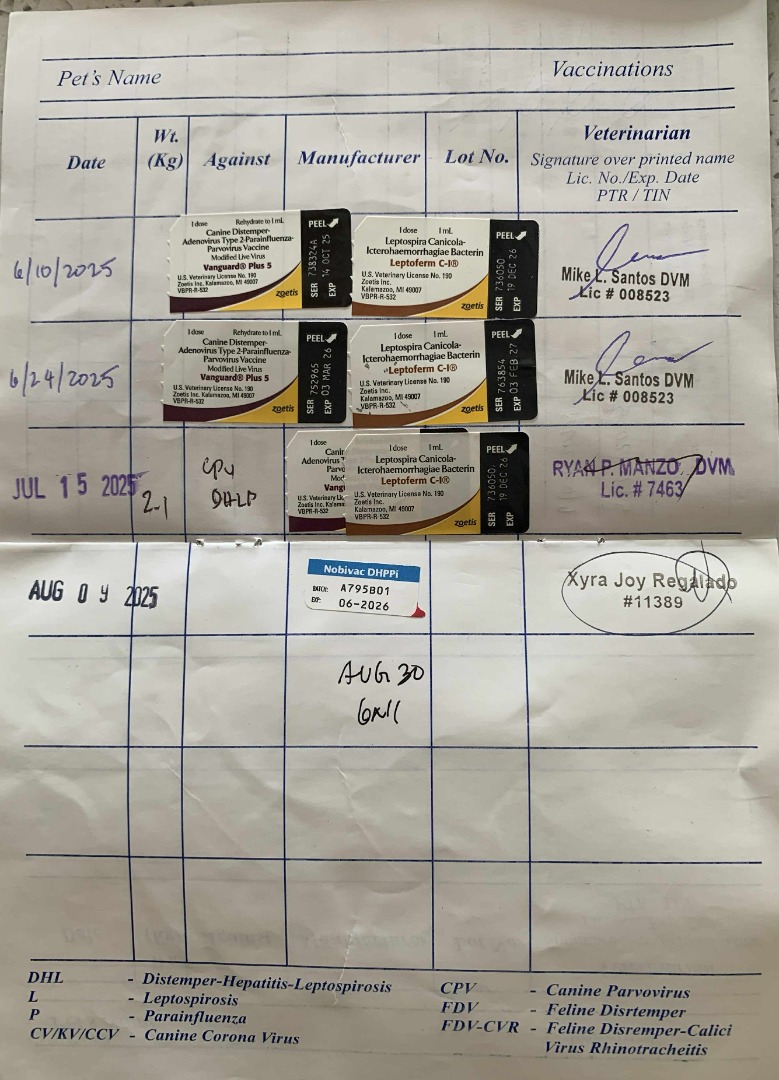 Pet's Name Vaccinations
Date Wt. (Kg) Against Manufacturer Lot No. Veterinarian
Signature over printed name
Lic. No./Exp. Date
PTR / TIN
6/10/2025
1 dose Rehydrate to 1 mL
Canine Distemper-
Adenovirus Type 2-Parainfluenza-
Parvovirus Vaccine
Modified Live Virus
Vanguard® Plus 5
U.S. Veterinary License No. 190
Zoetis Inc. Kalamazoo, MI 49007
VBPR-R-532
zoetis
PEEL
SER 738324A
EXP 14 OCT 25
1 dose 1 mL
Leptospira Canicola-
Icterohaemorrhagiae Bacterin
Leptoferm C-I®
U.S. Veterinary License No. 190
Zoetis Inc.
Kalamazoo, MI 49007
VBPR-R-532
zoetis
PEEL
SER 736050
EXP 19 DEC 26
Mike L. Santos DVM
Lic # 008523
6/24/2025
1 dose Rehydrate to 1 mL
Canine Distemper-
Adenovirus Type 2-Parainfluenza-
Parvovirus Vaccine
Modified Live Virus
Vanguard® Plus 5
U.S. Veterinary License No. 190
Zoetis Inc. Kalamazoo, MI 49007
VBPR-R-532
zoetis
PEEL
SER 752965
EXP 03 MAR 26
1 dose 1 mL
Leptospira Canicola-
Icterohaemorrhagiae Bacterin
Leptoferm C-I®
U.S. Veterinary License No. 190
Zoetis Inc.
Kalamazoo, MI 49007
VBPR-R-532
zoetis
PEEL
SER 763854
EXP 03 FEB 27
Mike L. Santos DVM
Lic # 008523
JUL 15 2025
2.1
CPV
DHLP
1 dose
Canin
Adenovirus T
Parvo
Mod
Vang
U.S. Veterinary Lic
Zoetis Inc. Kalam
VBPR-R-532
1 dose 1 mL
Leptospira Canicola-
Icterohaemorrhagiae Bacterin
Leptoferm C-I®
U.S. Veterinary License No. 190
Zoetis Inc.
Kalamazoo, MI 49007
VBPR-R-532
zoetis
PEEL
SER 736050
EXP 19 DEC 26
RYAN P. MANZO, DVM
Lic. # 7463
AUG 09 2025
Nobivac DHPPi
BATCH: A795B01
EXP: 06-2026
Xyra Joy Regalado
#11389
AUG 30
DHL - Distemper-Hepatitis-Leptospirosis
L - Leptospirosis
P - Parainfluenza
CV/KV/CCV - Canine Corona Virus
CPV - Canine Parvovirus
FDV - Feline Disrtemper
FDV-CVR - Feline Disremper-Calici
Virus Rhinotracheitis